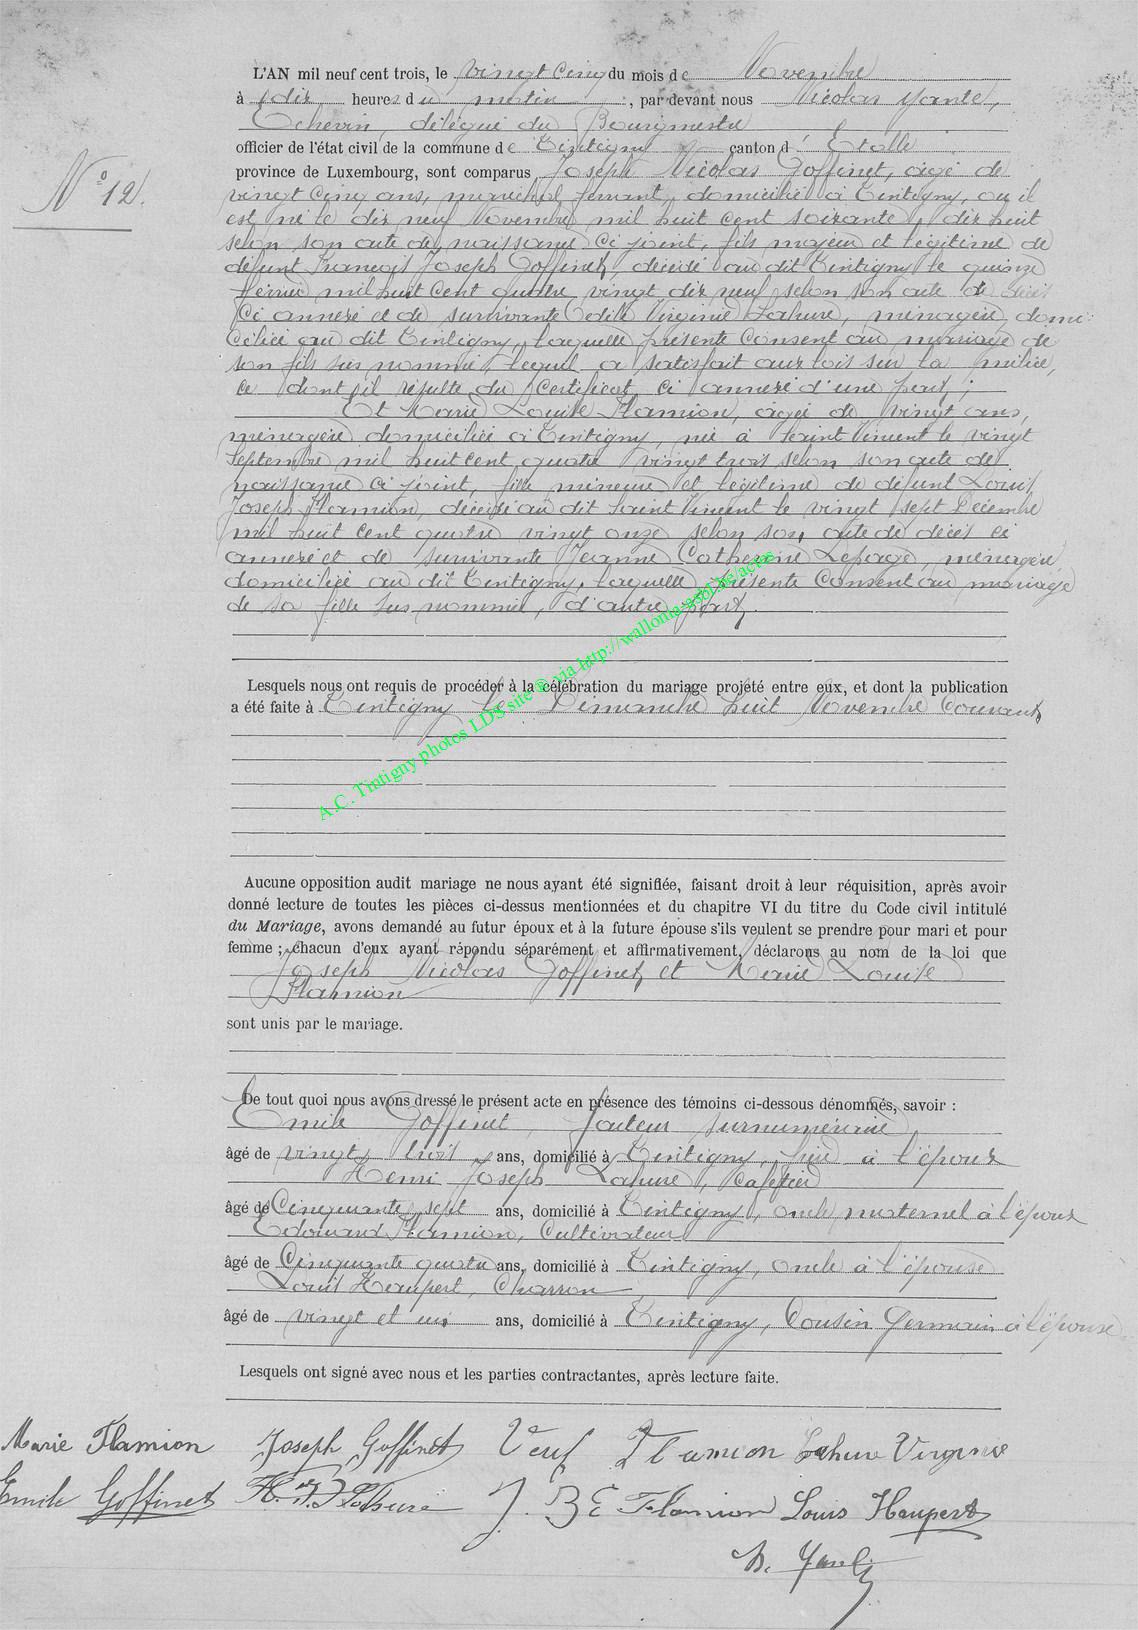 N° 12.
L'AN mil neuf cent trois, le vingt cinq du mois de Novembre
à dix heures du matin, par devant nous Nicolas
Echevin, délégué du Bourgmestre
officier de l'état civil de la commune de Tintigny canton d'Etalle
province de Luxembourg, sont comparus Joseph Nicolas Goffinet, agé de
vingt cinq ans, maréchal ferrant, domicilié à Tintigny, où il
est né le dix neuf Novembre mil huit cent soixante dix huit
selon son acte de naissance ci joint, fils majeur et légitime de
défunt François Joseph Goffinet, décédé au dit Tintigny le quinze
février mil huit cent quatre vingt dix neuf selon son acte de décès
ci annexé et de survivante Odile Virginie Lahure, ménagère, domi-
ciliée au dit Tintigny, laquelle présente consent au mariage de
son fils sus nommé, lequel a satisfait aux lois sur la milice,
ce dont il résulte du certificat ci annexé d'une part ;
Et Marie Louise Flamion, agée de vingt ans,
ménagère domiciliée à Tintigny, née à Saint Vincent le vingt
Septembre mil huit cent quatre vingt trois selon son acte de
naissance ci joint, fille mineure et légitime de défunt Louis
Joseph Flamion, décédé au dit Saint Vincent le vingt sept Décembre
mil huit cent quatre vingt onze selon son acte de décès ci
annexé et de survivante Jeanne Catherine Lepage, ménagère,
domiciliée au dit Tintigny, laquelle présente consent au mariage
de sa fille sus nommée, d'autre part.
Lesquels nous ont requis de procéder à la célébration du mariage projeté entre eux, et dont la publication
a été faite à Tintigny le Dimanche huit Novembre Courant
A.C. Tintigny photos LDS site © via http://wallonia-asbl.be/actes
Aucune opposition audit mariage ne nous ayant été signifiée, faisant droit à leur réquisition, après avoir
donné lecture de toutes les pièces ci-dessus mentionnées et du chapitre VI du titre du Code civil intitulé
du Mariage, avons demandé au futur époux et à la future épouse s'ils veulent se prendre pour mari et pour
femme ; chacun d'eux ayant répondu séparément et affirmativement, déclarons au nom de la loi que
Joseph Nicolas Goffinet et Marie Louise
Flamion
sont unis par le mariage.
De tout quoi nous avons dressé le présent acte en présence des témoins ci-dessous dénommés, savoir :
Emile Goffinet, facteur surnuméraire
âgé de vingt huit ans, domicilié à Tintigny, frère à l'époux
Henri Joseph Lahure, Cafetier
âgé de Cinquante sept ans, domicilié à Tintigny, oncle maternel à l'époux
Edouard Flamion, Cultivateur
âgé de Cinquante quatre ans, domicilié à Tintigny, oncle à l'épouse
Louis Haupert, Charron
âgé de vingt et un ans, domicilié à Tintigny, Cousin Germain à l'épouse
Lesquels ont signé avec nous et les parties contractantes, après lecture faite.
Marie Flamion Joseph Goffinet Veuf Flamion Lahure Virginie
Emile Goffinet H. J. Lahure J. B E Flamion Louis Haupert
N.